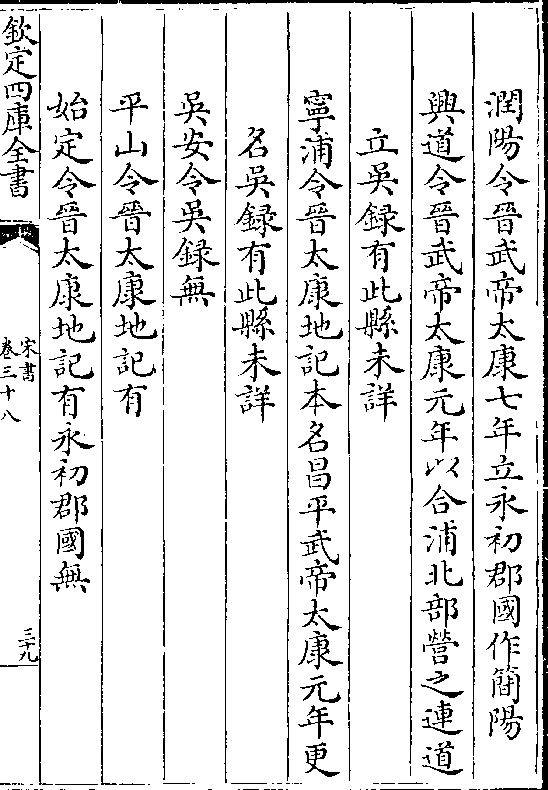 潤陽令晉武帝太康七年立永初郡國作簡陽
興道令晉武帝太康元年以合浦北部營之連道
立吳録有此縣未詳
寧浦令晉太康地記本名昌平武帝太康元年更
名吳録有此縣未詳
吳安令吳録無
平山令晉太康地記有
始定令晉太康地記有永初郡國無
欽定四庫全書
宋書
卷三十八
三十九